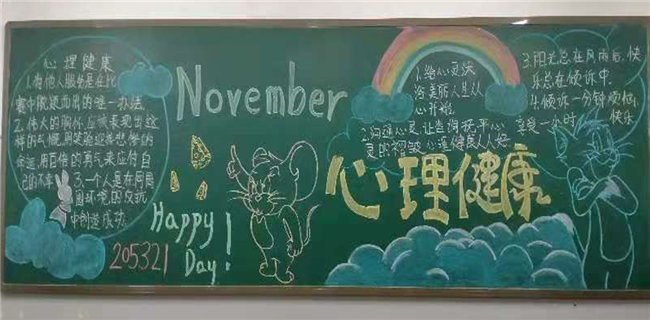 心理健康
1.有他人服务是在比
赛中脱颖而出的唯一办法
2.伟人的胸怀应该表现出这
样的气慨用笑脸迎接悲惨的
命运,用百倍的勇气来应付自
己的不幸
3.一个人是在同周
围环境的反抗
中创造成功.
November
Happy
Day!
205321
1.给心灵沐
浴美丽人生从
心开始
2.沟通心灵,让杏润抚平心
灵的褶皱 心理健康人人好
3.阳光总在风雨后,快
乐总在倾诉中.
4.倾诉一分钟烦恼,
享受一小时快乐
心理健康